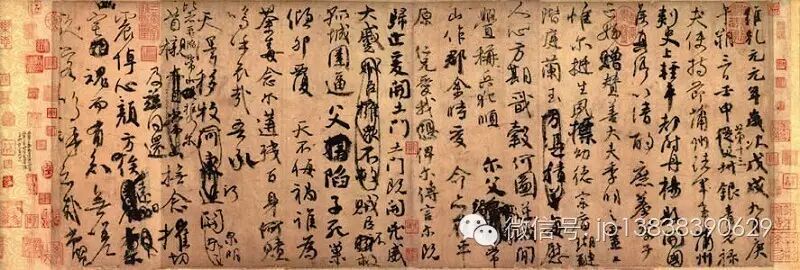 維乾元元年歲次戊戌九月庚
午朔三日壬申第十三叔銀青光祿
夫使持節蒲州諸軍事蒲州
刺史上輕車都尉丹楊縣開國
侯真卿以清酌庶羞祭于
亡姪贈贊善大夫季明之靈曰
惟爾挺生夙標幼德宗廟瑚璉
階庭蘭玉每慰
人心方期戩穀何圖逆賊閒
釁稱兵犯順爾父竭誠常
山作郡余時受命亦在平
原仁兄愛我俾爾傳言爾既
歸止爰開土門土門既開凶威
大蹙賊臣不救
孤城圍逼父陷子死巢
傾卵覆天不悔禍誰為
荼毒念爾遘殘百身何贖
嗚呼哀哉吾承
天澤移牧河關泉明
比者再陷常山攜爾
首櫬及茲同還撫念摧切
震悼心顏方俟遠日
幽宅魂而有知無嗟
久客嗚呼哀哉尚饗
微信号: jp13838390629